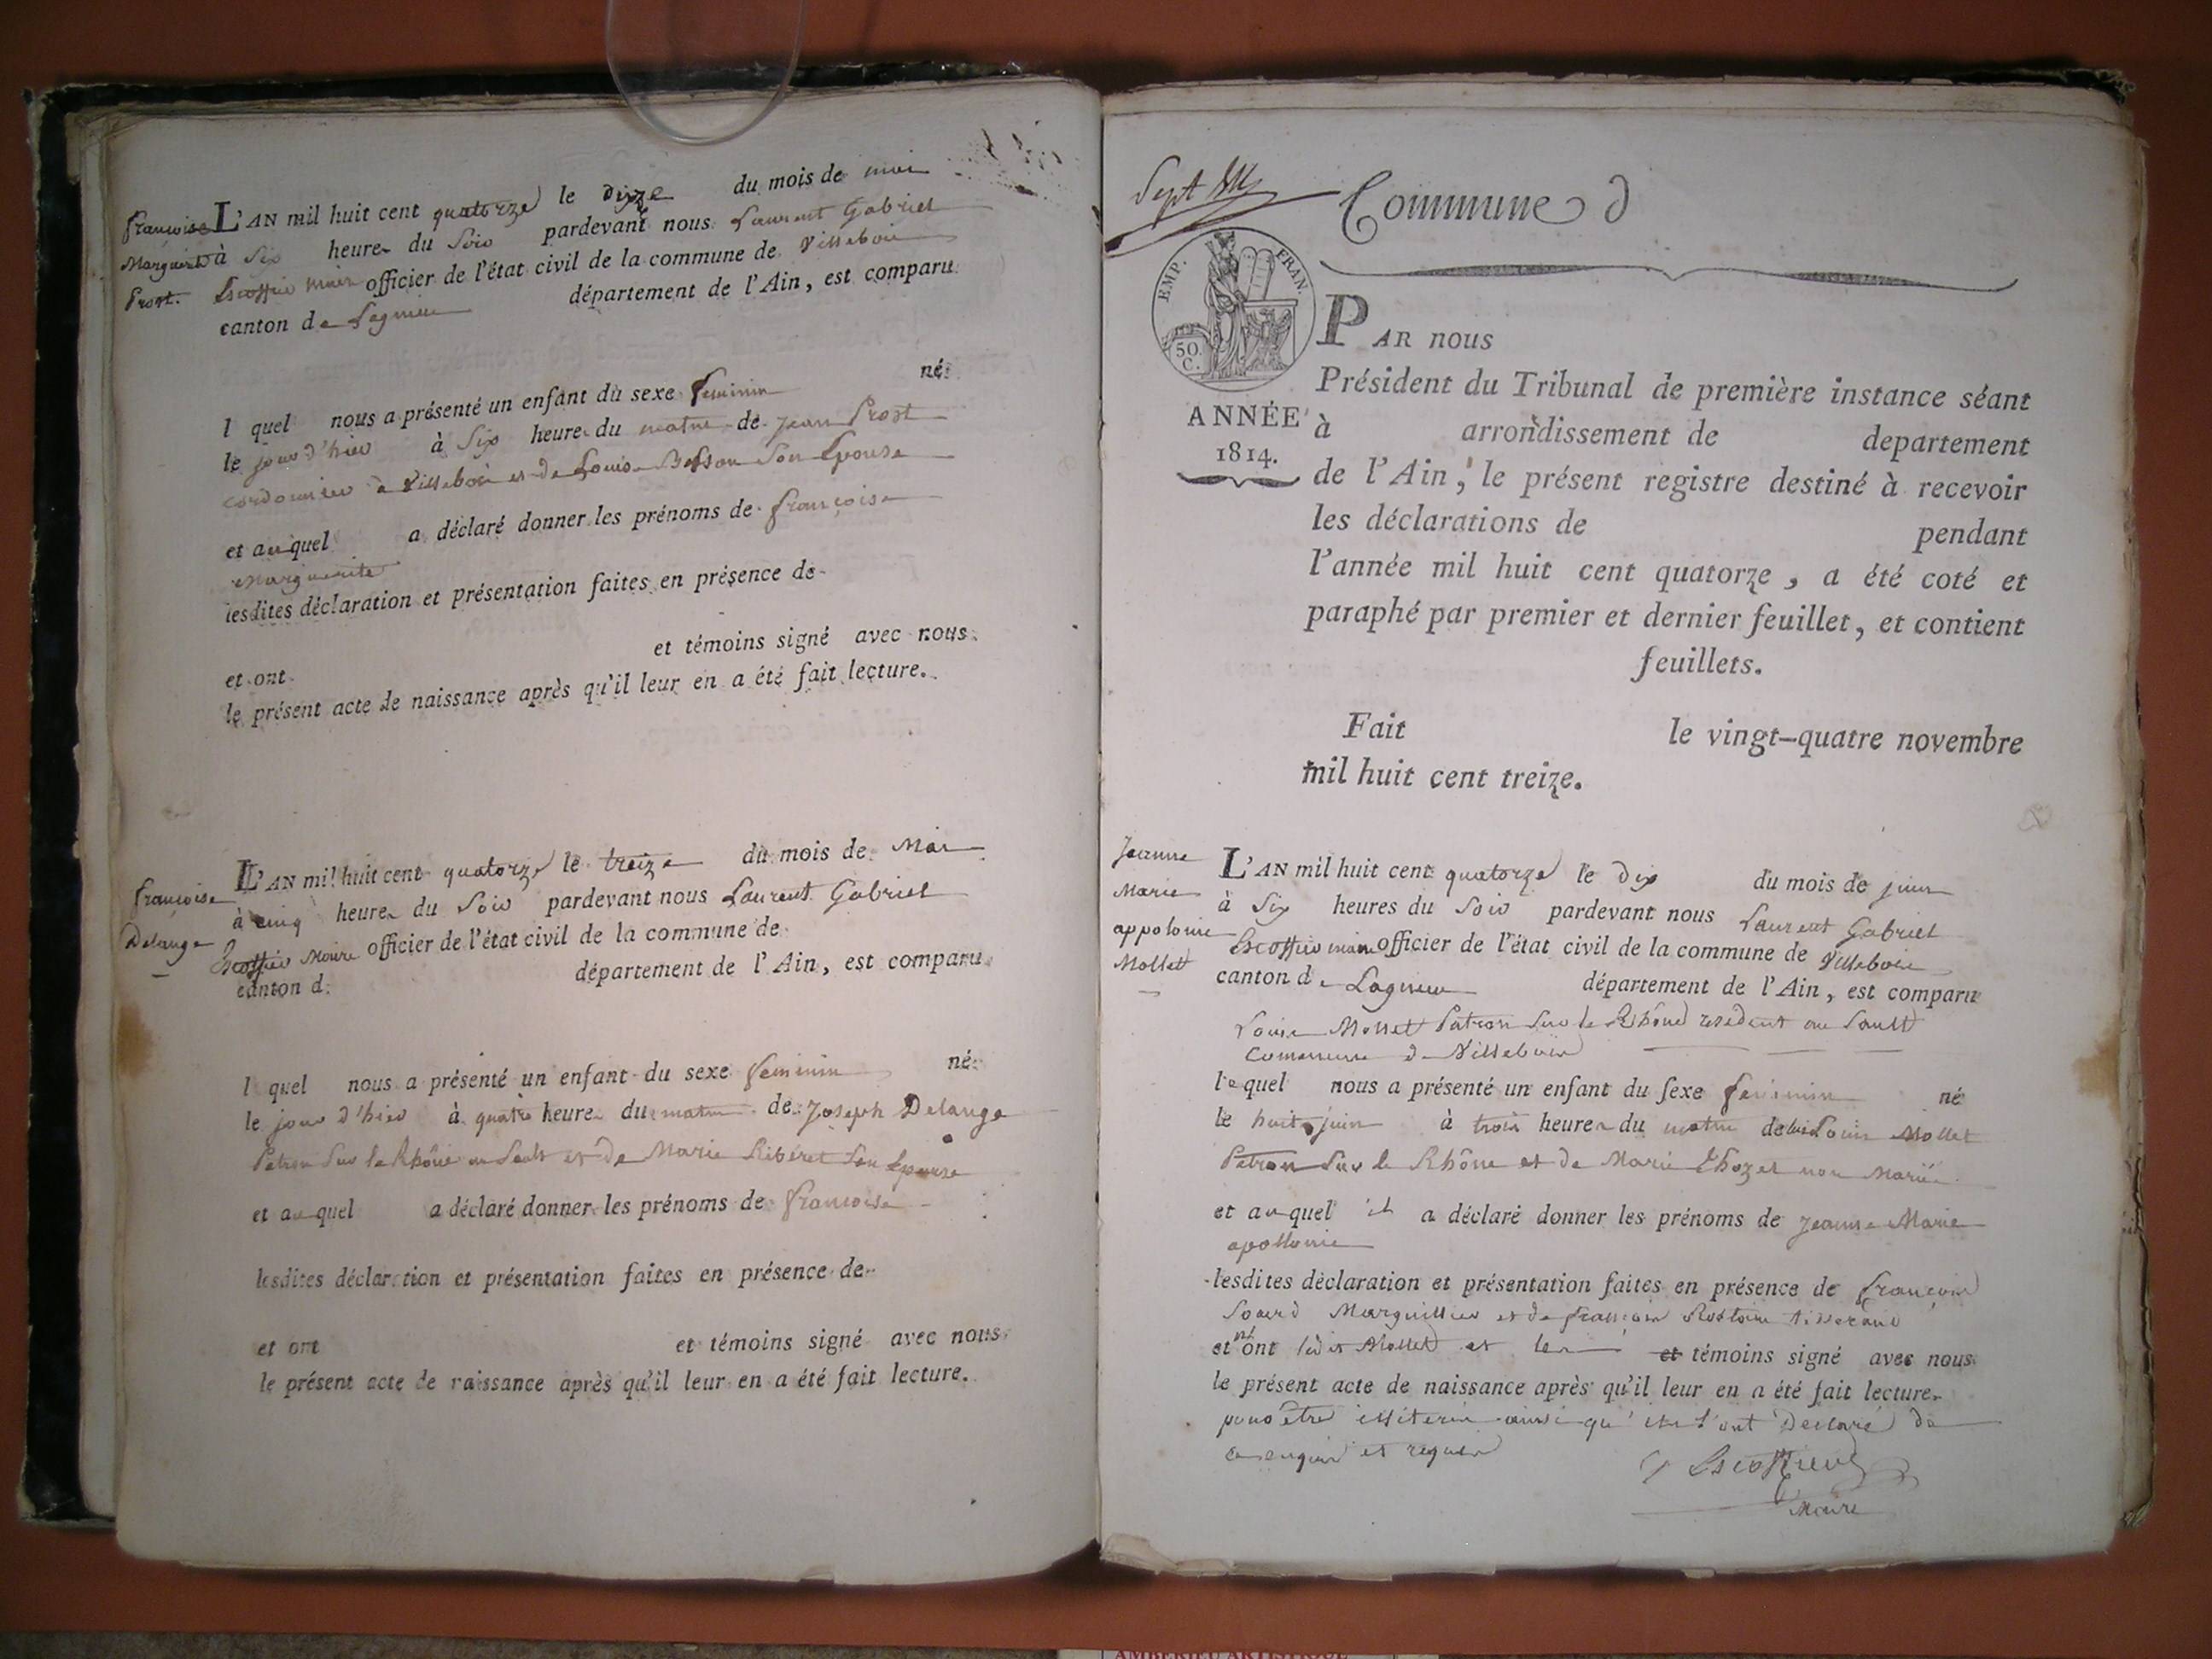 françoise
Marguerite
Prost.
L'AN mil huit cent quatorze le dix du mois de mai
à Six heures du Soir pardevant nous Laurent Gabriel
Escoffier maire officier de l'état civil de la commune de Villeboi
canton de Lagnieu département de l'Ain, est comparu
l quel nous a présenté un enfant du sexe feminin né
le jour d'hier à Six heures du matin de Jean Prost
cordonnier à Villeboi et de Louise Besson Son Epouse
et auquel a déclaré donner les prénoms de françoise
Marguerite
lesdites déclaration et présentation faites en présence de
et ont et témoins signé avec nous
le présent acte de naissance après qu'il leur en a été fait lecture.
françoise
Delange
L'AN mil huit cent quatorze le treize du mois de Mai
à cinq heures du Soir pardevant nous Laurent Gabriel
Escoffier Maire officier de l'état civil de la commune de
canton d département de l'Ain, est comparu
l quel nous a présenté un enfant du sexe feminin né
le jour d'hier à quatre heures du matin de Joseph Delange
Patron Sur le Rhône au Sault et de Marie Ribéret Son Epouse
et auquel a déclaré donner les prénoms de françoise
lesdites déclaration et présentation faites en présence de
et ont et témoins signé avec nous
le présent acte de naissance après qu'il leur en a été fait lecture.
Sept
Commune d
EMP. FRAN.
50.
C.
ANNÉE
1814.
PAR nous
Président du Tribunal de première instance séant
à arrondissement de departement
de l'Ain, le présent registre destiné à recevoir
les déclarations de pendant
l'année mil huit cent quatorze, a été coté et
paraphé par premier et dernier feuillet, et contient
feuillets.
Fait le vingt-quatre novembre
mil huit cent treize.
Jeanne
Marie
appolonie
Mollet
L'AN mil huit cent quatorze le dix du mois de juin
à Six heures du Soir pardevant nous Laurent Gabriel
Escoffier maire officier de l'état civil de la commune de Villeboi
canton de Lagnieu département de l'Ain, est comparu
Louis Mollet Patron Sur le Rhône résident au Sault
Commune de Villeboi
lequel nous a présenté un enfant du sexe feminin né
le huit juin à trois heures du matin de lui Louis Mollet
Patron Sur le Rhône et de Marie non Marié
et auquel il a déclaré donner les prénoms de Jeanne Marie
apollonie
lesdites déclaration et présentation faites en présence de françois
Marguillier et de françois
et n'ont ledit Mollet et les et témoins signé avec nous
le présent acte de naissance après qu'il leur en a été fait lecture.
pour être illiterés ainsi qu'ils l'ont Déclaré de
ce enquis et requis
Escoffier
Maire